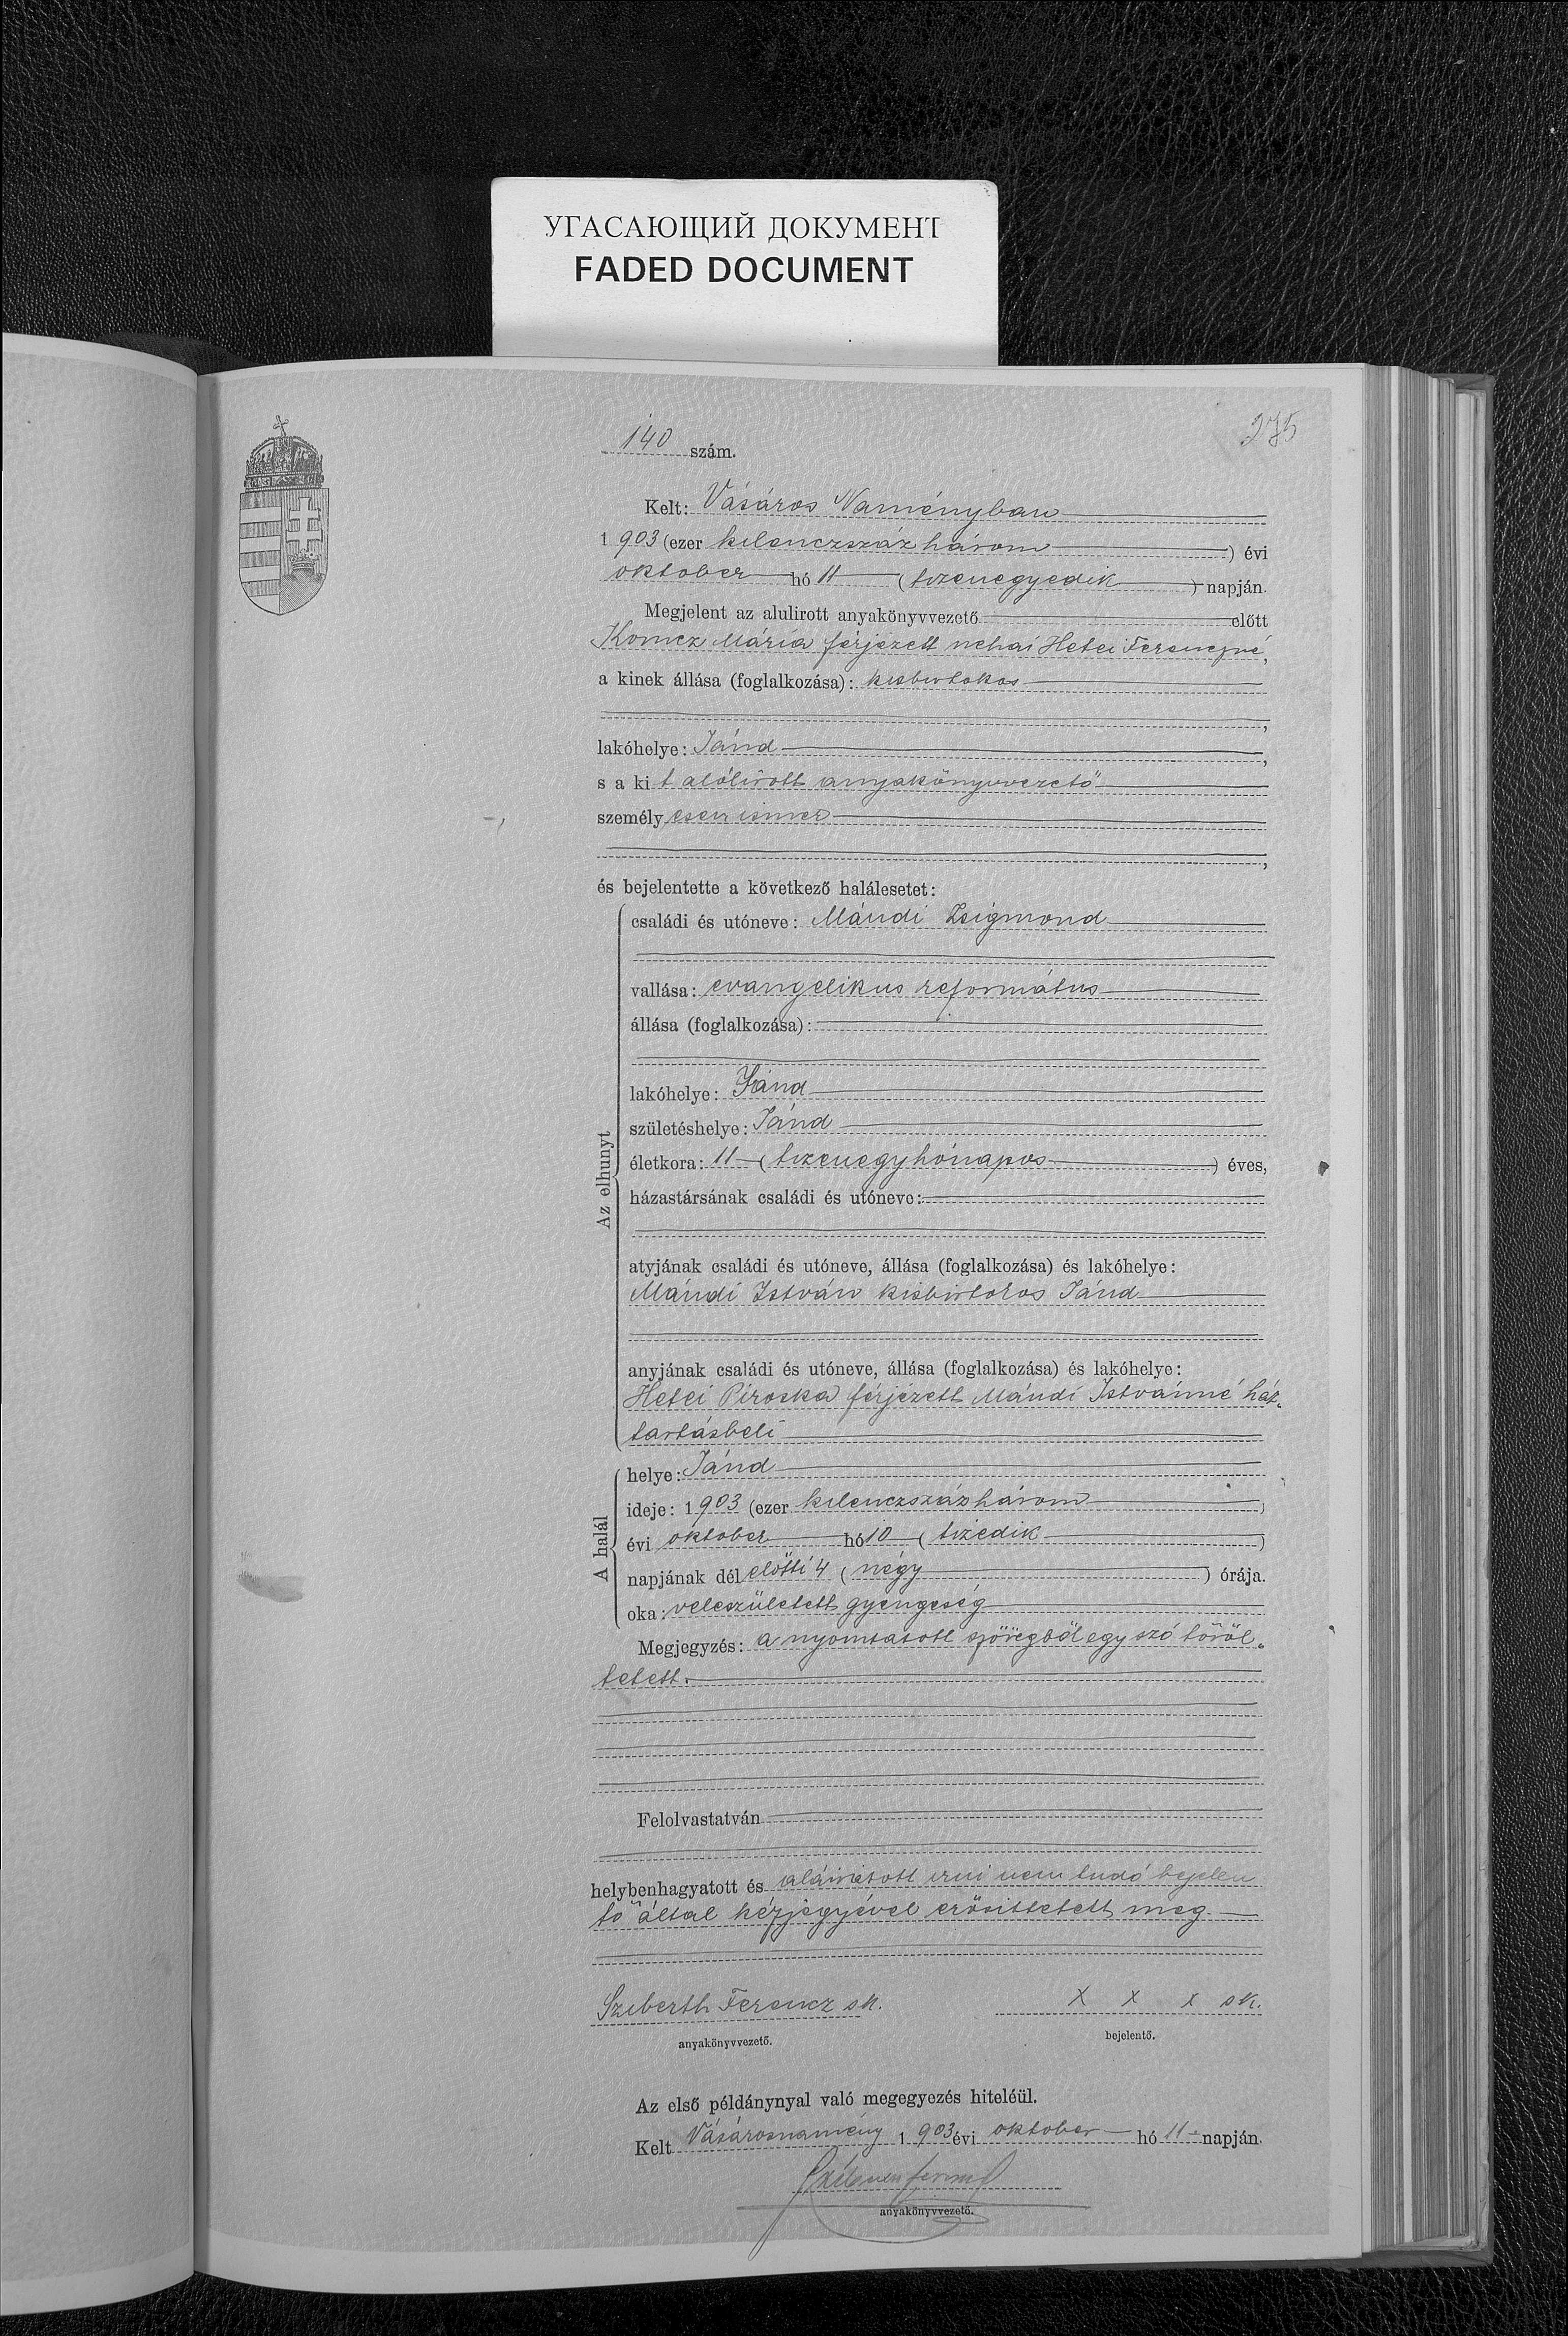 УГАСАЮЩИЙ ДОКУМЕНТ
FADED DOCUMENT
275
140 szám.
Kelt: Vásáros Naményban
1903 (ezer kilenczszáz három ) évi
október hó 11 ( tizenegyedik ) napján.
Megjelent az alulirott anyakönyvvezető előtt
Koncz Mária férjezett nehai Hetei Ferenczné,
a kinek állása (foglalkozása): kisbirtokos
,
lakóhelye: Jánd ,
s a kit alólirott anyakönyvvezető
személyesen ismer
,
és bejelentette a következő halálesetet:
Az elhunyt
családi és utóneve: Mándi Zsigmond
vallása: evangelikus református
állása (foglalkozása):
lakóhelye: Jánd
születéshelye: Jánd
életkora: 11 ( tizenegy hónapos ) éves,
házastársának családi és utóneve:
atyjának családi és utóneve, állása (foglalkozása) és lakóhelye:
Mándi István kisbirtokos Jánd
anyjának családi és utóneve, állása (foglalkozása) és lakóhelye:
Hetei Piroska férjezett Mándi Istvánné ház-
tartásbeli
A halál
helye: Jánd
ideje: 1903 (ezer kilenczszáz három )
évi október hó 10 ( tizedik )
napjának dél előtti 4 ( négy ) órája.
oka: veleszületett gyengeség
Megjegyzés: a nyomtatott szövegből egy szó töröl-
tetett.
Felolvastatván
helybenhagyatott és aláiratott irni nem tudó bejelen
tő által kézjegyével erősittetett meg.
Sziberth Ferencz sk. X X X sk.
anyakönyvvezető. bejelentő.
Az első példánynyal való megegyezés hiteléül.
Kelt Vásárosnamény 1903 évi október hó 11 napján.
anyakönyvvezető.